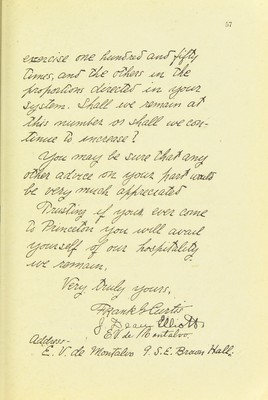 57
exercise one hundred and fifty
times, and the others in the
proportions directed in your
system. Shall we remain at
this number or shall we con-
tinue to increase?
You may be sure that any
other advice on your part would
be very much appreciated
Trusting if you ever come
to Princeton you will avail
yourself of our hospitality
we remain,
Very truly yours,
Frank G Curtis
J Dean Elliott
E.V de Montalvo.
Address-
E. V. de Montalvo 9. S.E. Brown Hall.